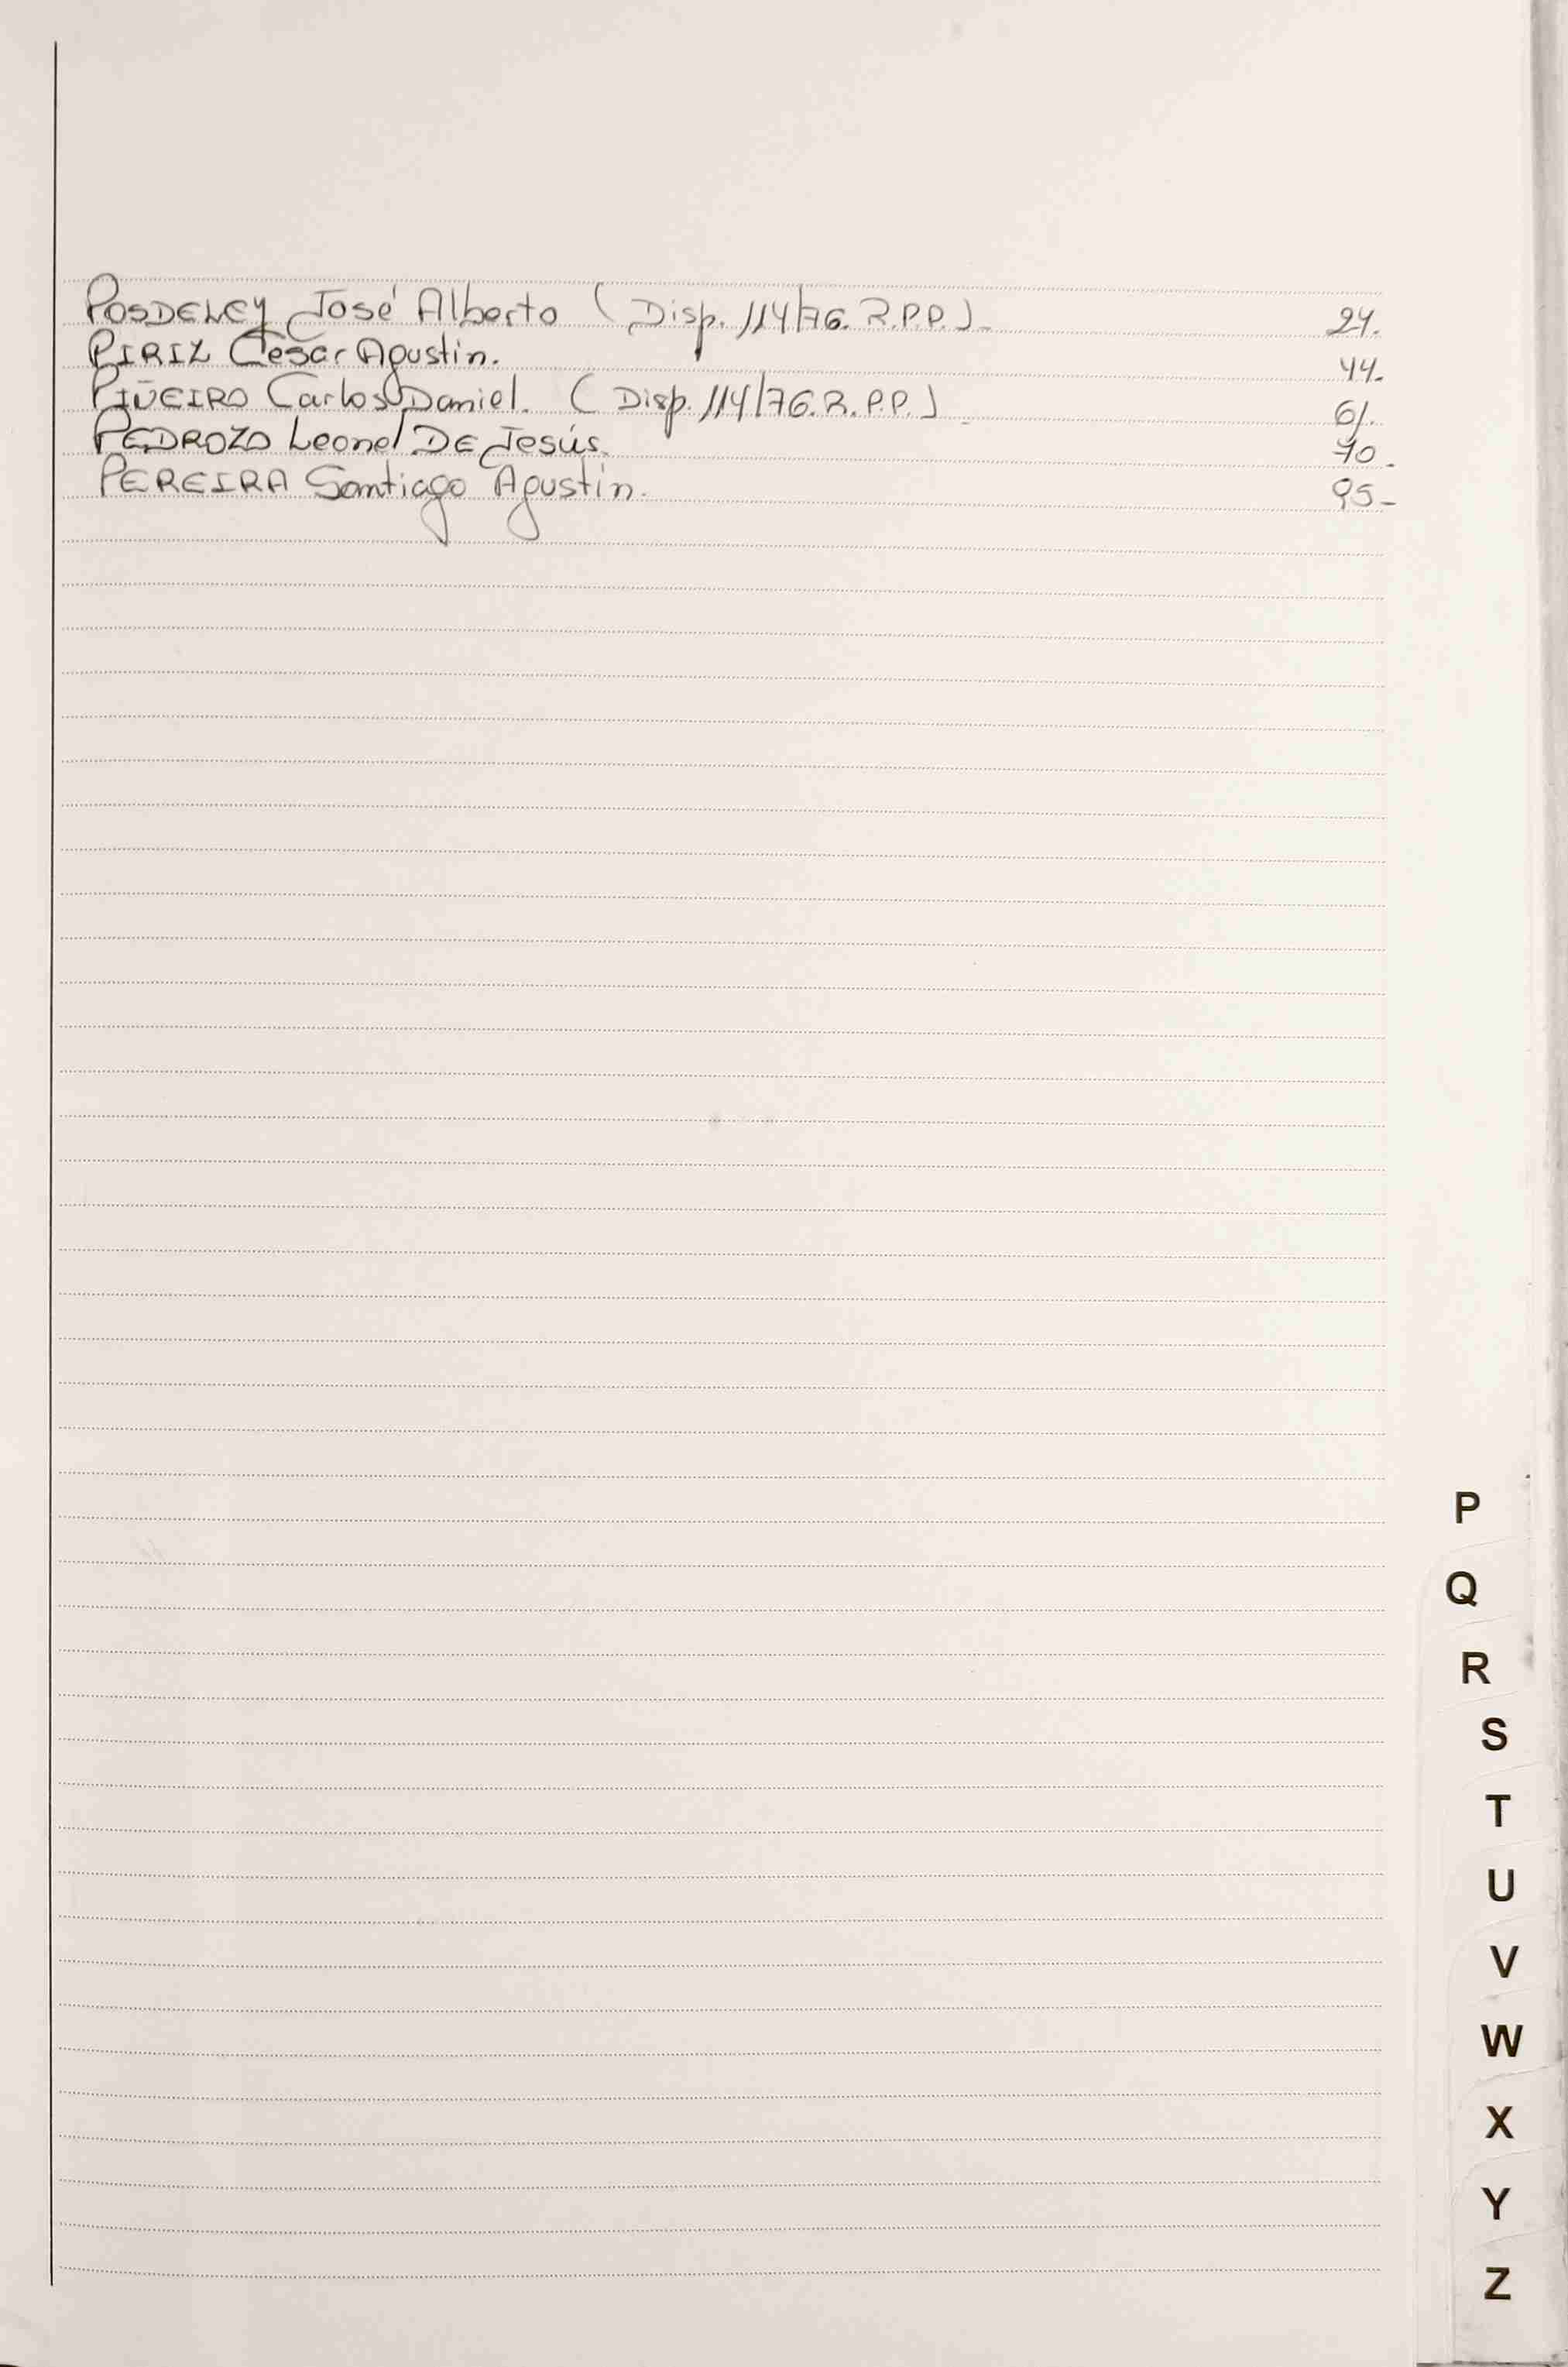 POSDELEY José Alberto (Disp. 114/76. R.P.P.)- 24.
PIRIZ Cesar Agustin. 44.
PIÑEIRO Carlos Daniel. (Disp. 114/76. R.P.P.) 61.
PEDROZO Leonel DE Jesús. 70.
PEREIRA Santiago Agustin. 95-
P
Q
R
S
T
U
V
W
X
Y
Z